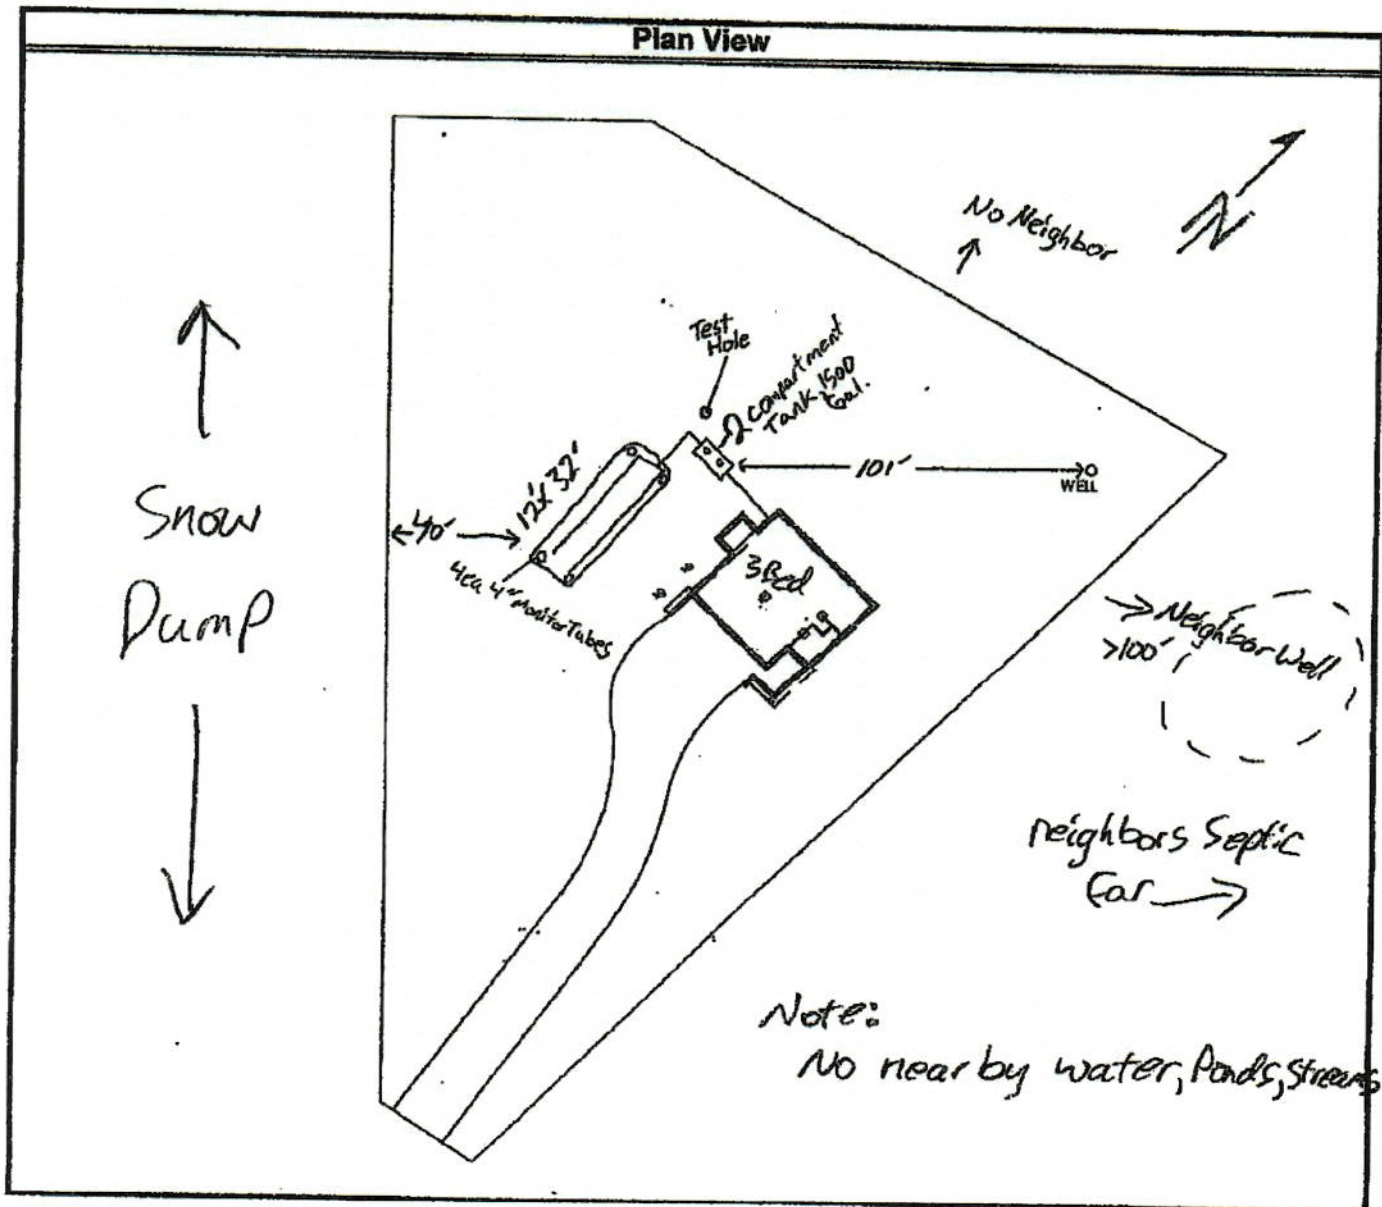 Plan View
N
No Neighbor
Test
Hole
2 Compartment
Tank 1500
Gal.
101'
WELL
12' x 32'
40'
4ea 4" Monitor Tubes
3 Bed
Snow
Dump
Neighbor Well
>100'
neighbors Septic
Far
Note:
No nearby water, Ponds, Streams